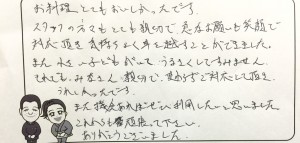 お料理、とてもおいしかったです。
スタッフの方々もとても親切で、急なお願いも笑顔で
対応頂き気持ちよく年を越すことができました。
また小さい子どもがいて、うるさくしてすみません。
それでもみなさん親切で、対応して頂き、
うれしかったです。
また機会あればぜひ利用したいと思いました。
これからも頑張って下さい。
ありがとうございました。